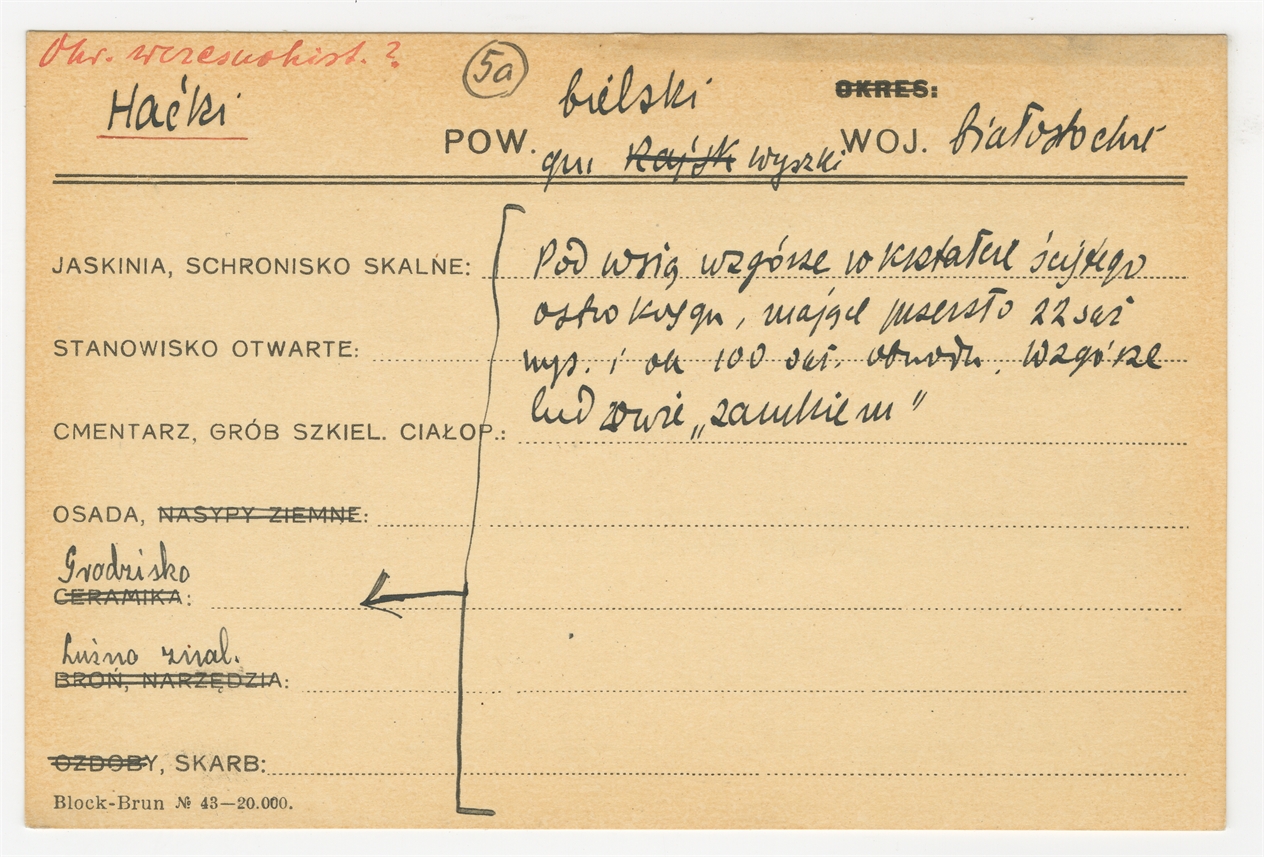 Okr. wczesnohist. ?
5a
Haćki
POW. bielski
OKRES:
gm Rajsk Wyszki
WOJ. białostockie
JASKINIA, SCHRONISKO SKALNE:
Pod wsią wzgórze w kształcie ściętego
ostrokręgu, mające przeszło 22 saż
STANOWISKO OTWARTE:
wys. i ok 100 saż. obwodu. Wzgórze
lud zowie „zamkiem"
CMENTARZ, GRÓB SZKIEL. CIAŁOP.:
OSADA, NASYPY ZIEMNE:
Grodzisko
CERAMIKA:
Luźno znal.
BROŃ, NARZĘDZIA:
OZDOBY, SKARB:
Block-Brun № 43—20.000.